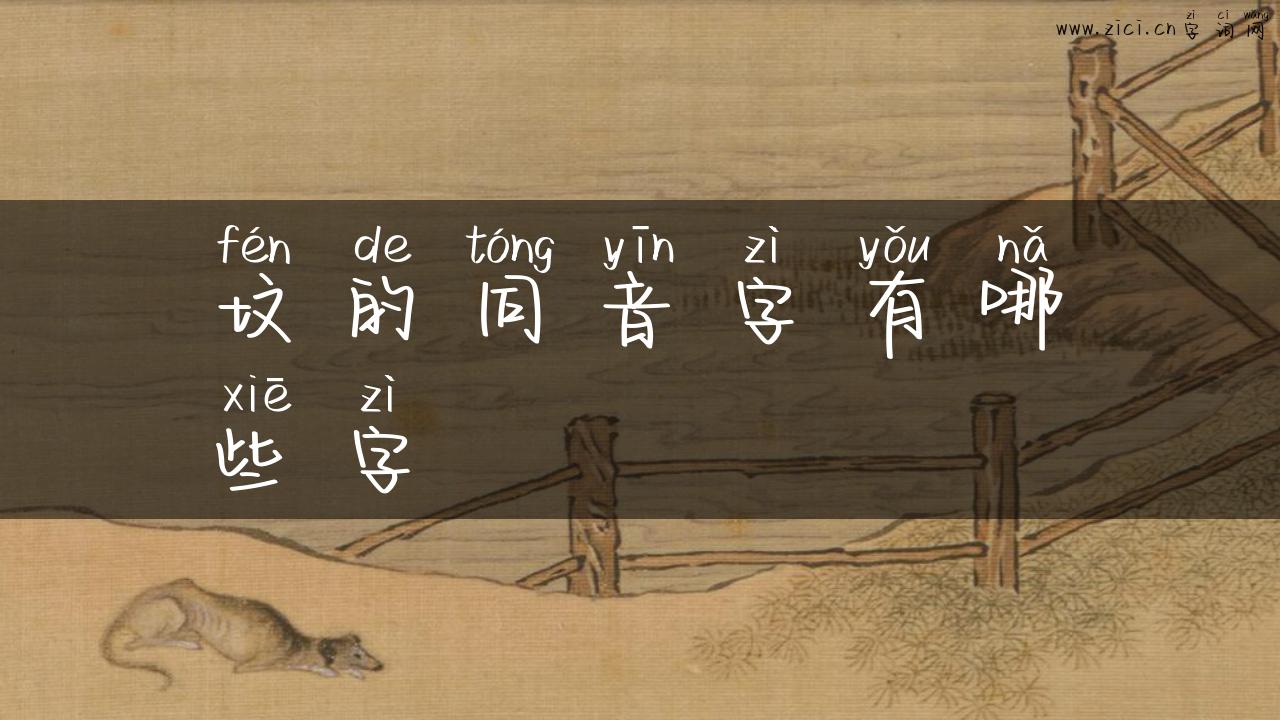 zì cí wǎng
www.zici.cn字词网
fén de tóng yīn zì yǒu nǎ
坟的同音字有哪
xiē zì
些字